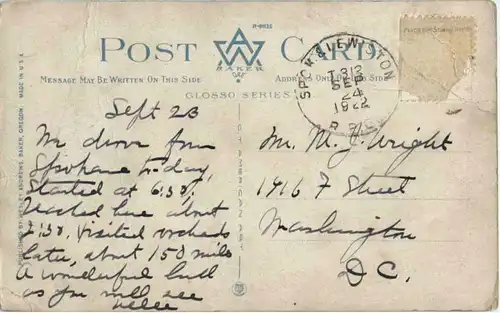 R-8625
POST CARD
BAKER
MESSAGE MAY BE WRITTEN ON THIS SIDE
ADDRESS ONLY ON THIS SIDE
GLOSSO SERIES
MADE IN U.S.A.
WESLEY ANDREWS, BAKER, OREGON.
SPOK & LEWISTON
SEP
24
1922
R.P.O.
Sept 23
We drove from
Spokane to-day,
Started at 6:30,
reached here about
2:30, Visited orchards
later, about 150 miles
A wonderful land
as you will see
Mr. M. J. Wright
1916 F Street
Washington
D.C.